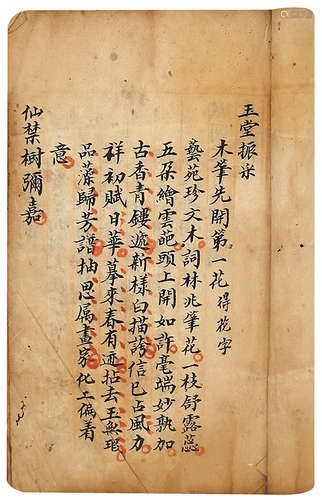 玉堂振采
木筆先開第一花 得花字
藝苑珍文木詞林兆筆花一枝舒露蕊
五朵繪雲葩頭上開如許毫端妙孰加
古香青鏤遞新樣白描誇信已占風力
祥初賦日華摹來春有迹拈去玉無瑕
品藻歸芳譜抽思属畫家化工偏着
意
仙禁樹彌嘉